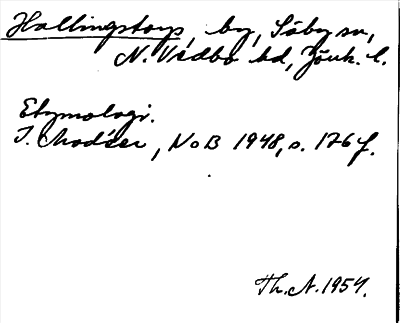 Hallingstorp, by, Säby sn,
N. Vedbo hd, Jönk. l.
Etymologi.
I. Modéer, NoB 1948, s. 176 f.
Th. A. 1954.